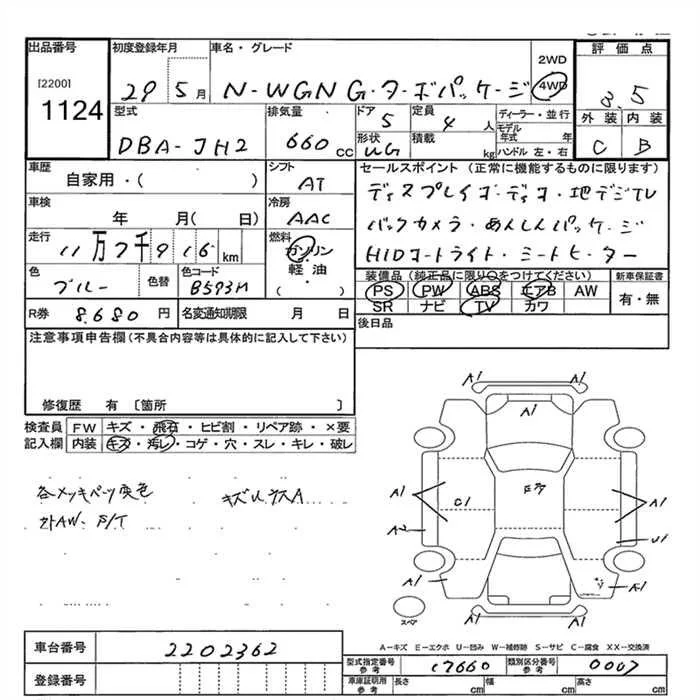 出品番号 初度登録年月 車名・グレード 2WD 評価点
[2200] 29 5月 N-WGN G・ターボパッケージ 4WD 3.5
1124 型式 排気量 ドア 定員 ディーラー・並行 外装 内装
DBA-JH2 660 CC 5 4人 モデル年式 年 C B
形状 積載 ハンドル 左・右
WG kg
車歴 シフト セールスポイント (正常に機能するものに限ります)
自家用・( ) AT ディスプレイオーディオ・地デジTV
車検 冷房 バックカメラ・あんしんパッケージ
年 月( 日) AAC HIDオートライト・シートヒーター
走行 燃料
11万7千916km ガソリン・軽油・( )
色 色替 色コード 装備品 (純正品に限り○をつけてください) 新車保証書
ブルー B593M PS PW ABS エアB AW 有・無
SR ナビ TV カワ
R券 8,680円 名変通知期限 月 日 後日品
注意事項申告欄(不具合内容等は具体的に記入して下さい)
修復歴 有 〔箇所 〕
検査員記入欄 FW キズ・飛石・ヒビ割・リペア跡・×要
内装 キズ・汚レ・コゲ・穴・スレ・キレ・破レ
各メッキパーツ変色 キズUヶスA
外AW. P/T
A1 A1
A1
A1 C1 A1
A2 U1
A1 A1
スペア
A-キズ E-エクボ U-凹み W-補修跡 S-サビ C-腐食 XX-交換済
車台番号 2202362
型式指定番号 参考 17660 類別区分番号 参考 0007
登録番号
車庫証明用 参考 長さ cm 幅 cm 高さ cm